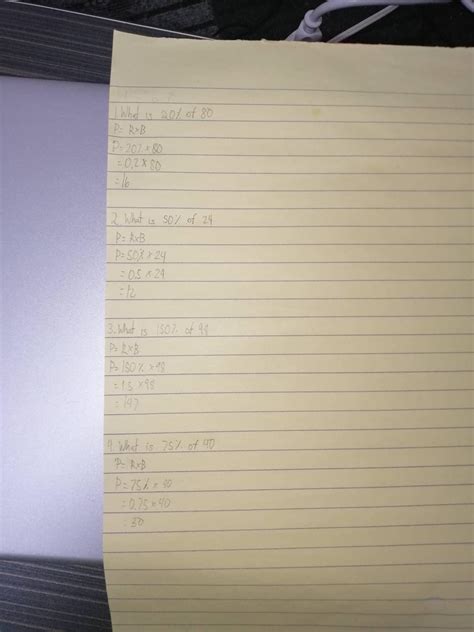 1. What is 20% of 80
P= RxB
P= 20% x 80
= 0.2 x 80
= 16
2. What is 50% of 24
P= RxB
P= 50% x 24
= 0.5 x 24
= 12
3. What is 150% of 98
P= RxB
P= 150% x 98
= 1.5 x 98
= 147
4. What is 75% of 40
P= RxB
P= 75% x 40
= 0.75 x 40
= 30